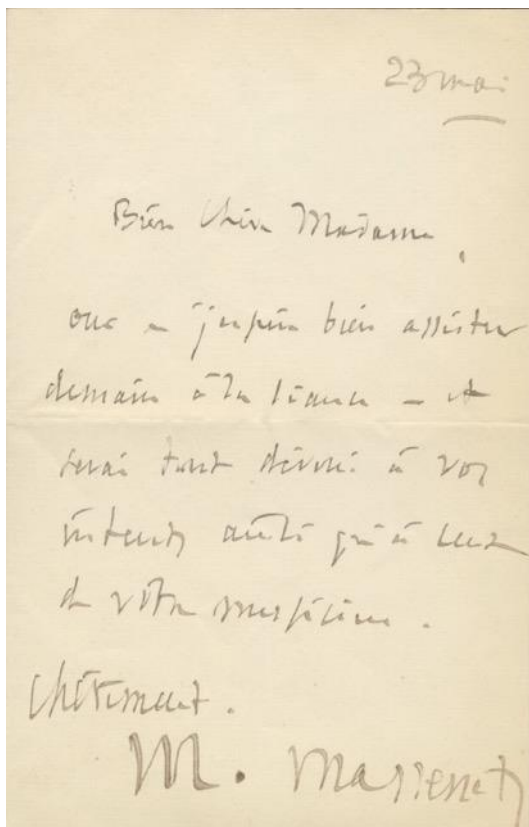 23 mai
Bien chère Madame,
oui – j'espère bien assister
demain à la séance – et
serai tout dévoué à vos
intérêts qu'à ceux
de votre
Chèrement.
M. Massenet